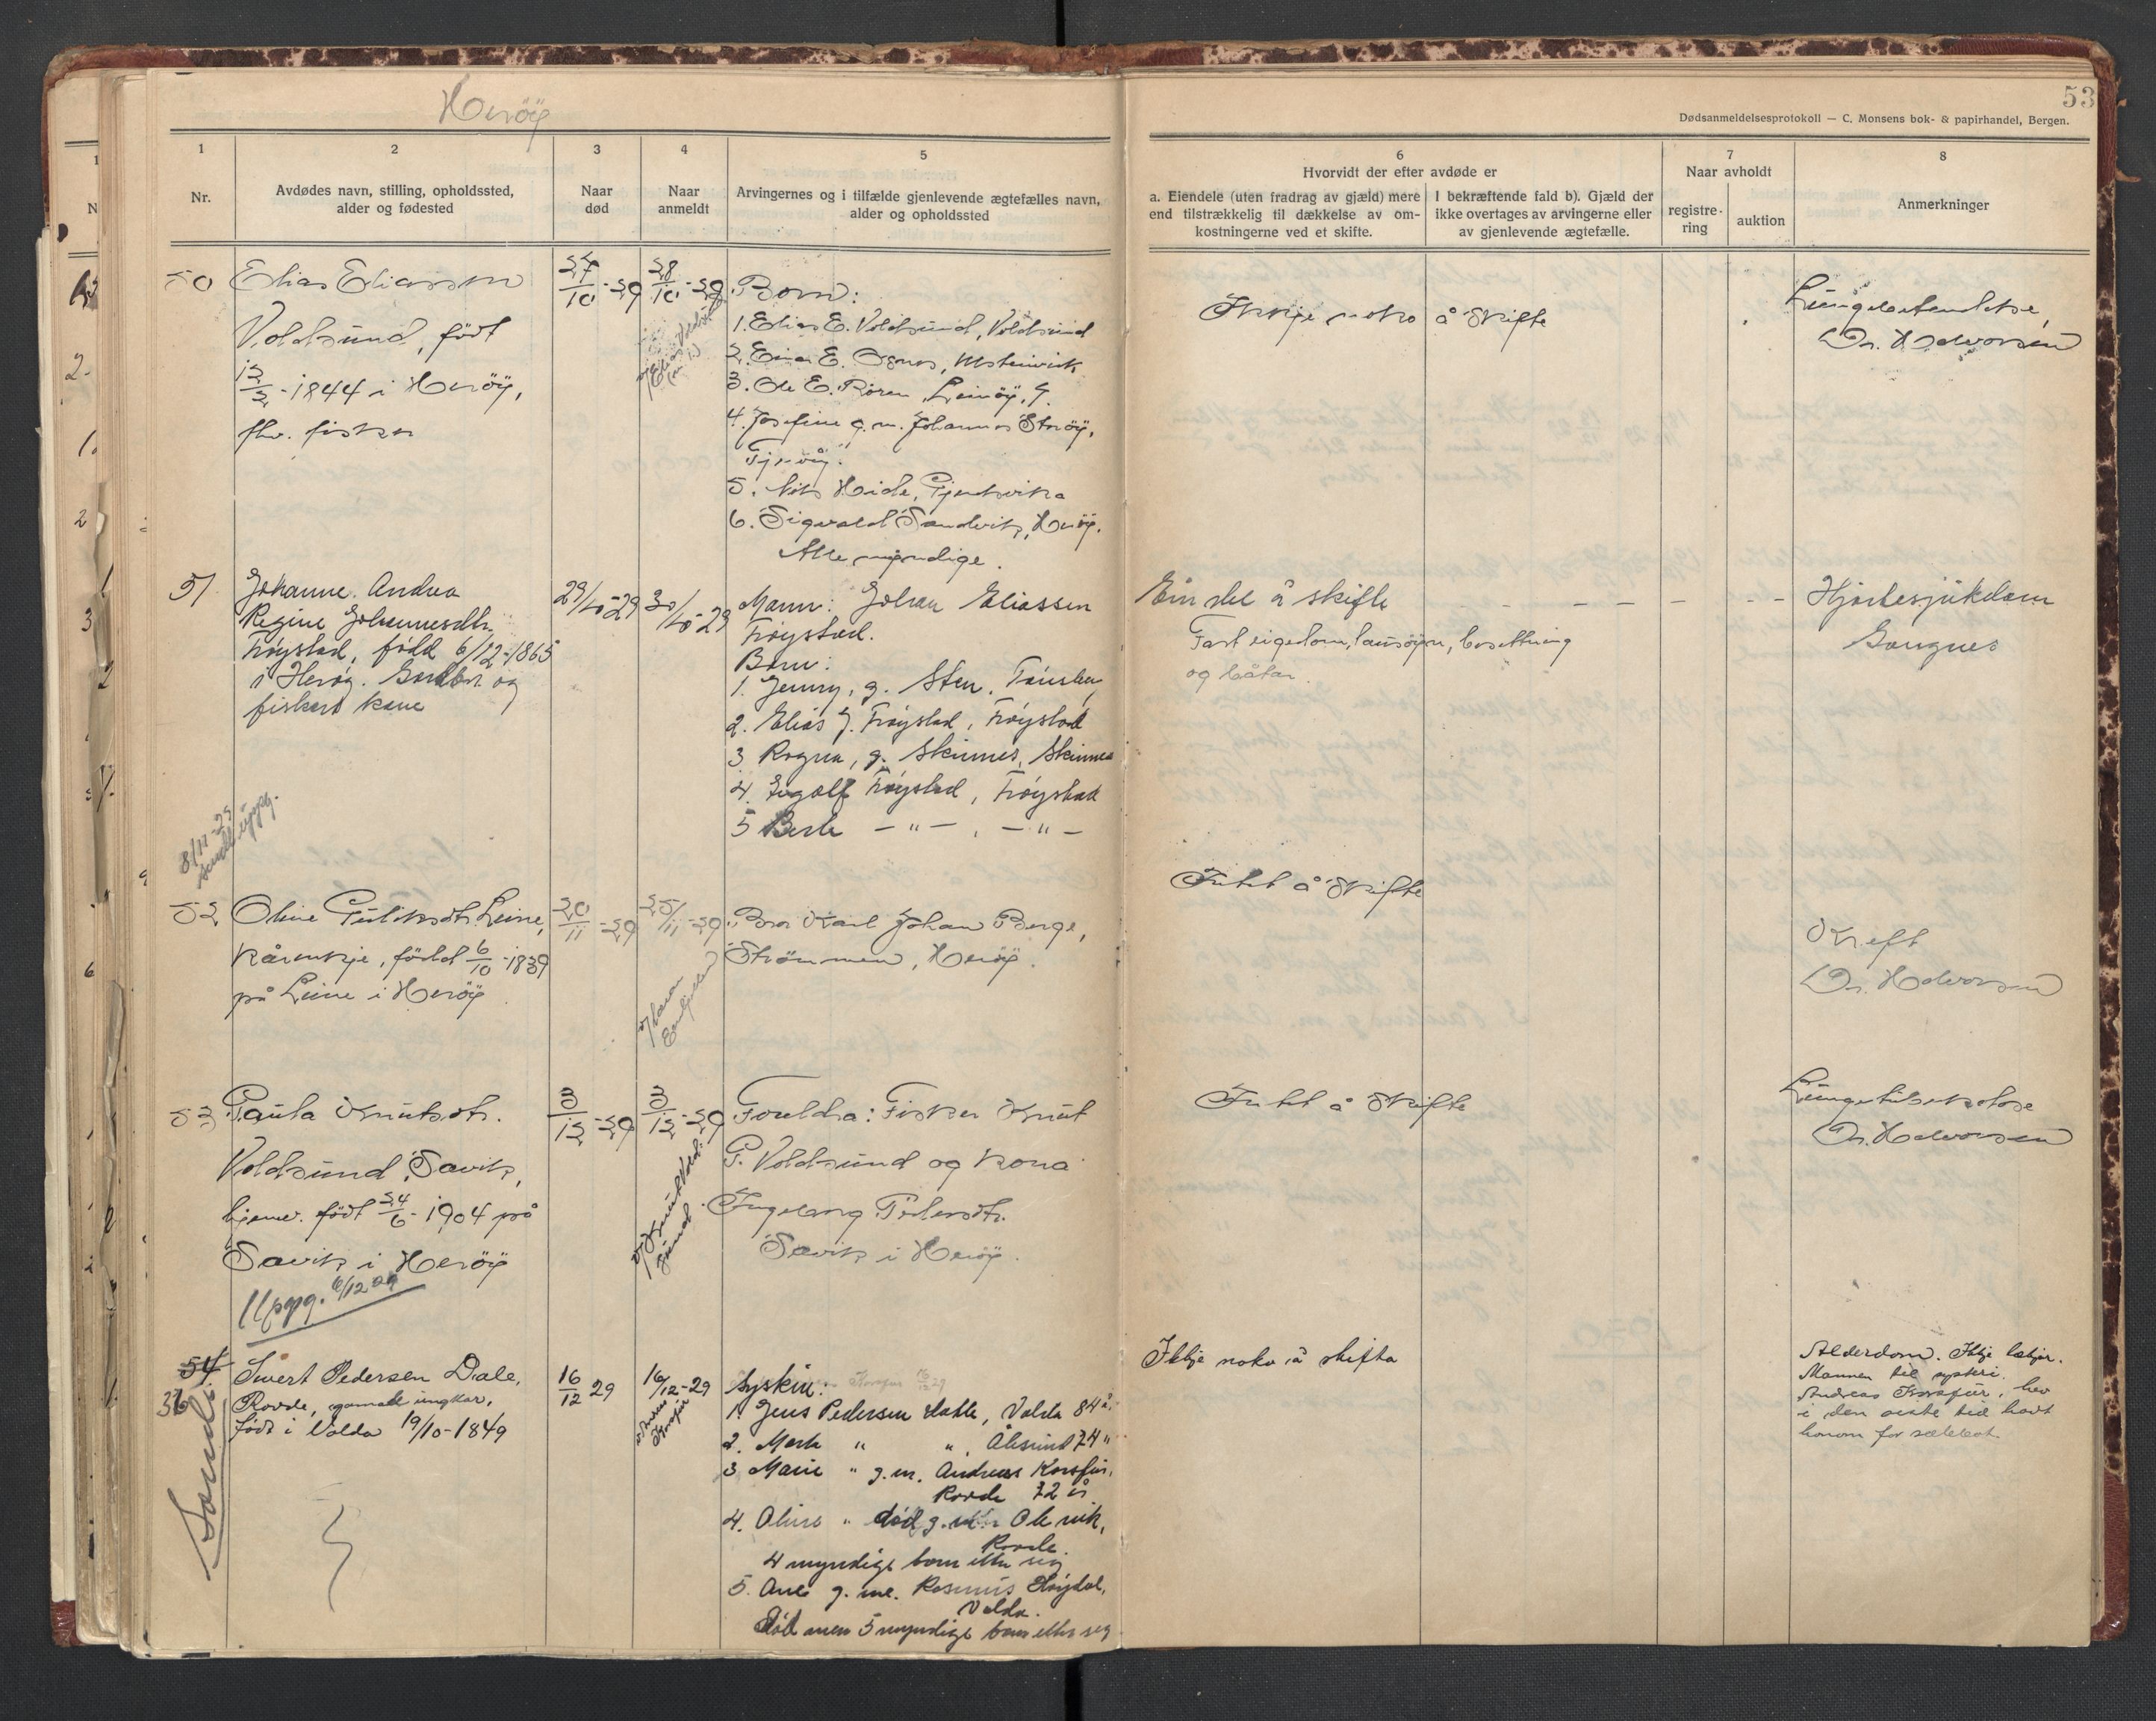 Herøy
53
Dødsanmeldelsesprotokoll — C. Monsens bok- & papirhandel, Bergen.
1
Nr.
2
Avdødes navn, stilling, opholdssted,
alder og fødested
3
Naar
død
4
Naar
anmeldt
5
Arvingernes og i tilfælde gjenlevende ægtefælles navn,
alder og opholdssted
6
Hvorvidt der efter avdøde er
a. Eiendele (uten fradrag av gjæld) mere
end tilstrækkelig til dækkelse av om-
kostningerne ved et skifte.
I bekræftende fald b). Gjæld der
ikke overtages av arvingerne eller
av gjenlevende ægtefælle.
7
Naar avholdt
registre-
ring
auktion
8
Anmerkninger
50
Elias Eliassen
Voldsund, født
12/2-1844 i Herøy,
fhv. fisker
27/10-29
28/10-29
Born:
1. Elias E. Voldsund, Voldsund
2. Einar E.
3. Ole E. Røren, Leinøy,
4. Josefine g. m. Johannes Storøy,
5. Nils Heide, Gjerdsvika
6. Sigvald Sandvik, Herøy.
Alle myndige.
Ikkje noko å skifte
Lungebetendelse,
Dr. Halvorsen
51
Johanne Andrea
Regine Johannesdtr.
Frøystad, fødd 6/12-1865
i Herøy. Gardbr. og
fiskars kone
29/10-29
30/10-29
Mann: Johan Eliassen
Frøystad.
Born:
1. Jenny, g. Sten,
2. Elias J. Frøystad, Frøystad
3 Ragna, g. Skinnes, Skinnes
4. Ingolf Frøystad, Frøystad
5 Berte — " — , — " —
Ein del å skifte
Fast eigedom, lausøyre, besetning
og båtar.
Hjartesjukdom
Gangnes
8/11-29
52
Oline Leine,
kårenkje, født 6/10-1839
på Leine i Herøy
20/11-29
25/11-29
Bror Karl Johan Berge,
Strømmen, Herøy.
Intet å skifte
Kreft
Dr. Halvorsen
53
Paula Knutsdtr.
Voldsund, Sævik,
hjemv. født 24/6-1904 på
Sævik i Herøy
Uppg. 6/12 29
3/12-29
3/12-29
v/ Knut Vold-
sund
Foreldra: Fisker Knut
P. Voldsund og kona
Ingeborg Pedersdtr.
Sævik i Herøy.
Intet å skifte
Lungetuberkulose
Dr. Halvorsen
54
36
Sande
Sivert Pedersen Dale,
Rovde, gamal ungkar,
født i Volda 19/10-1849
16/12 29
16/12-29
v/ Andreas
Korsfur
Syskin:
1. Jens Pedersen Hatle, Volda 84 å.
2. " ", Ålesund 74 "
3 Marie " g.m. Andreas Korsfur,
Rovde 72 år.
4. Oline " død g. m. Ole
Rovde.
4 myndige born etter seg
5. Ane g. m. Rasmus Høydal,
Volda.
Død men 5 myndige born etter seg
Ikkje noko å skifta
Alderdom. Ikkje lækjar.
Mannen til systeri,
Andreas Korsfur, hev
i den siste tid havt
honom for